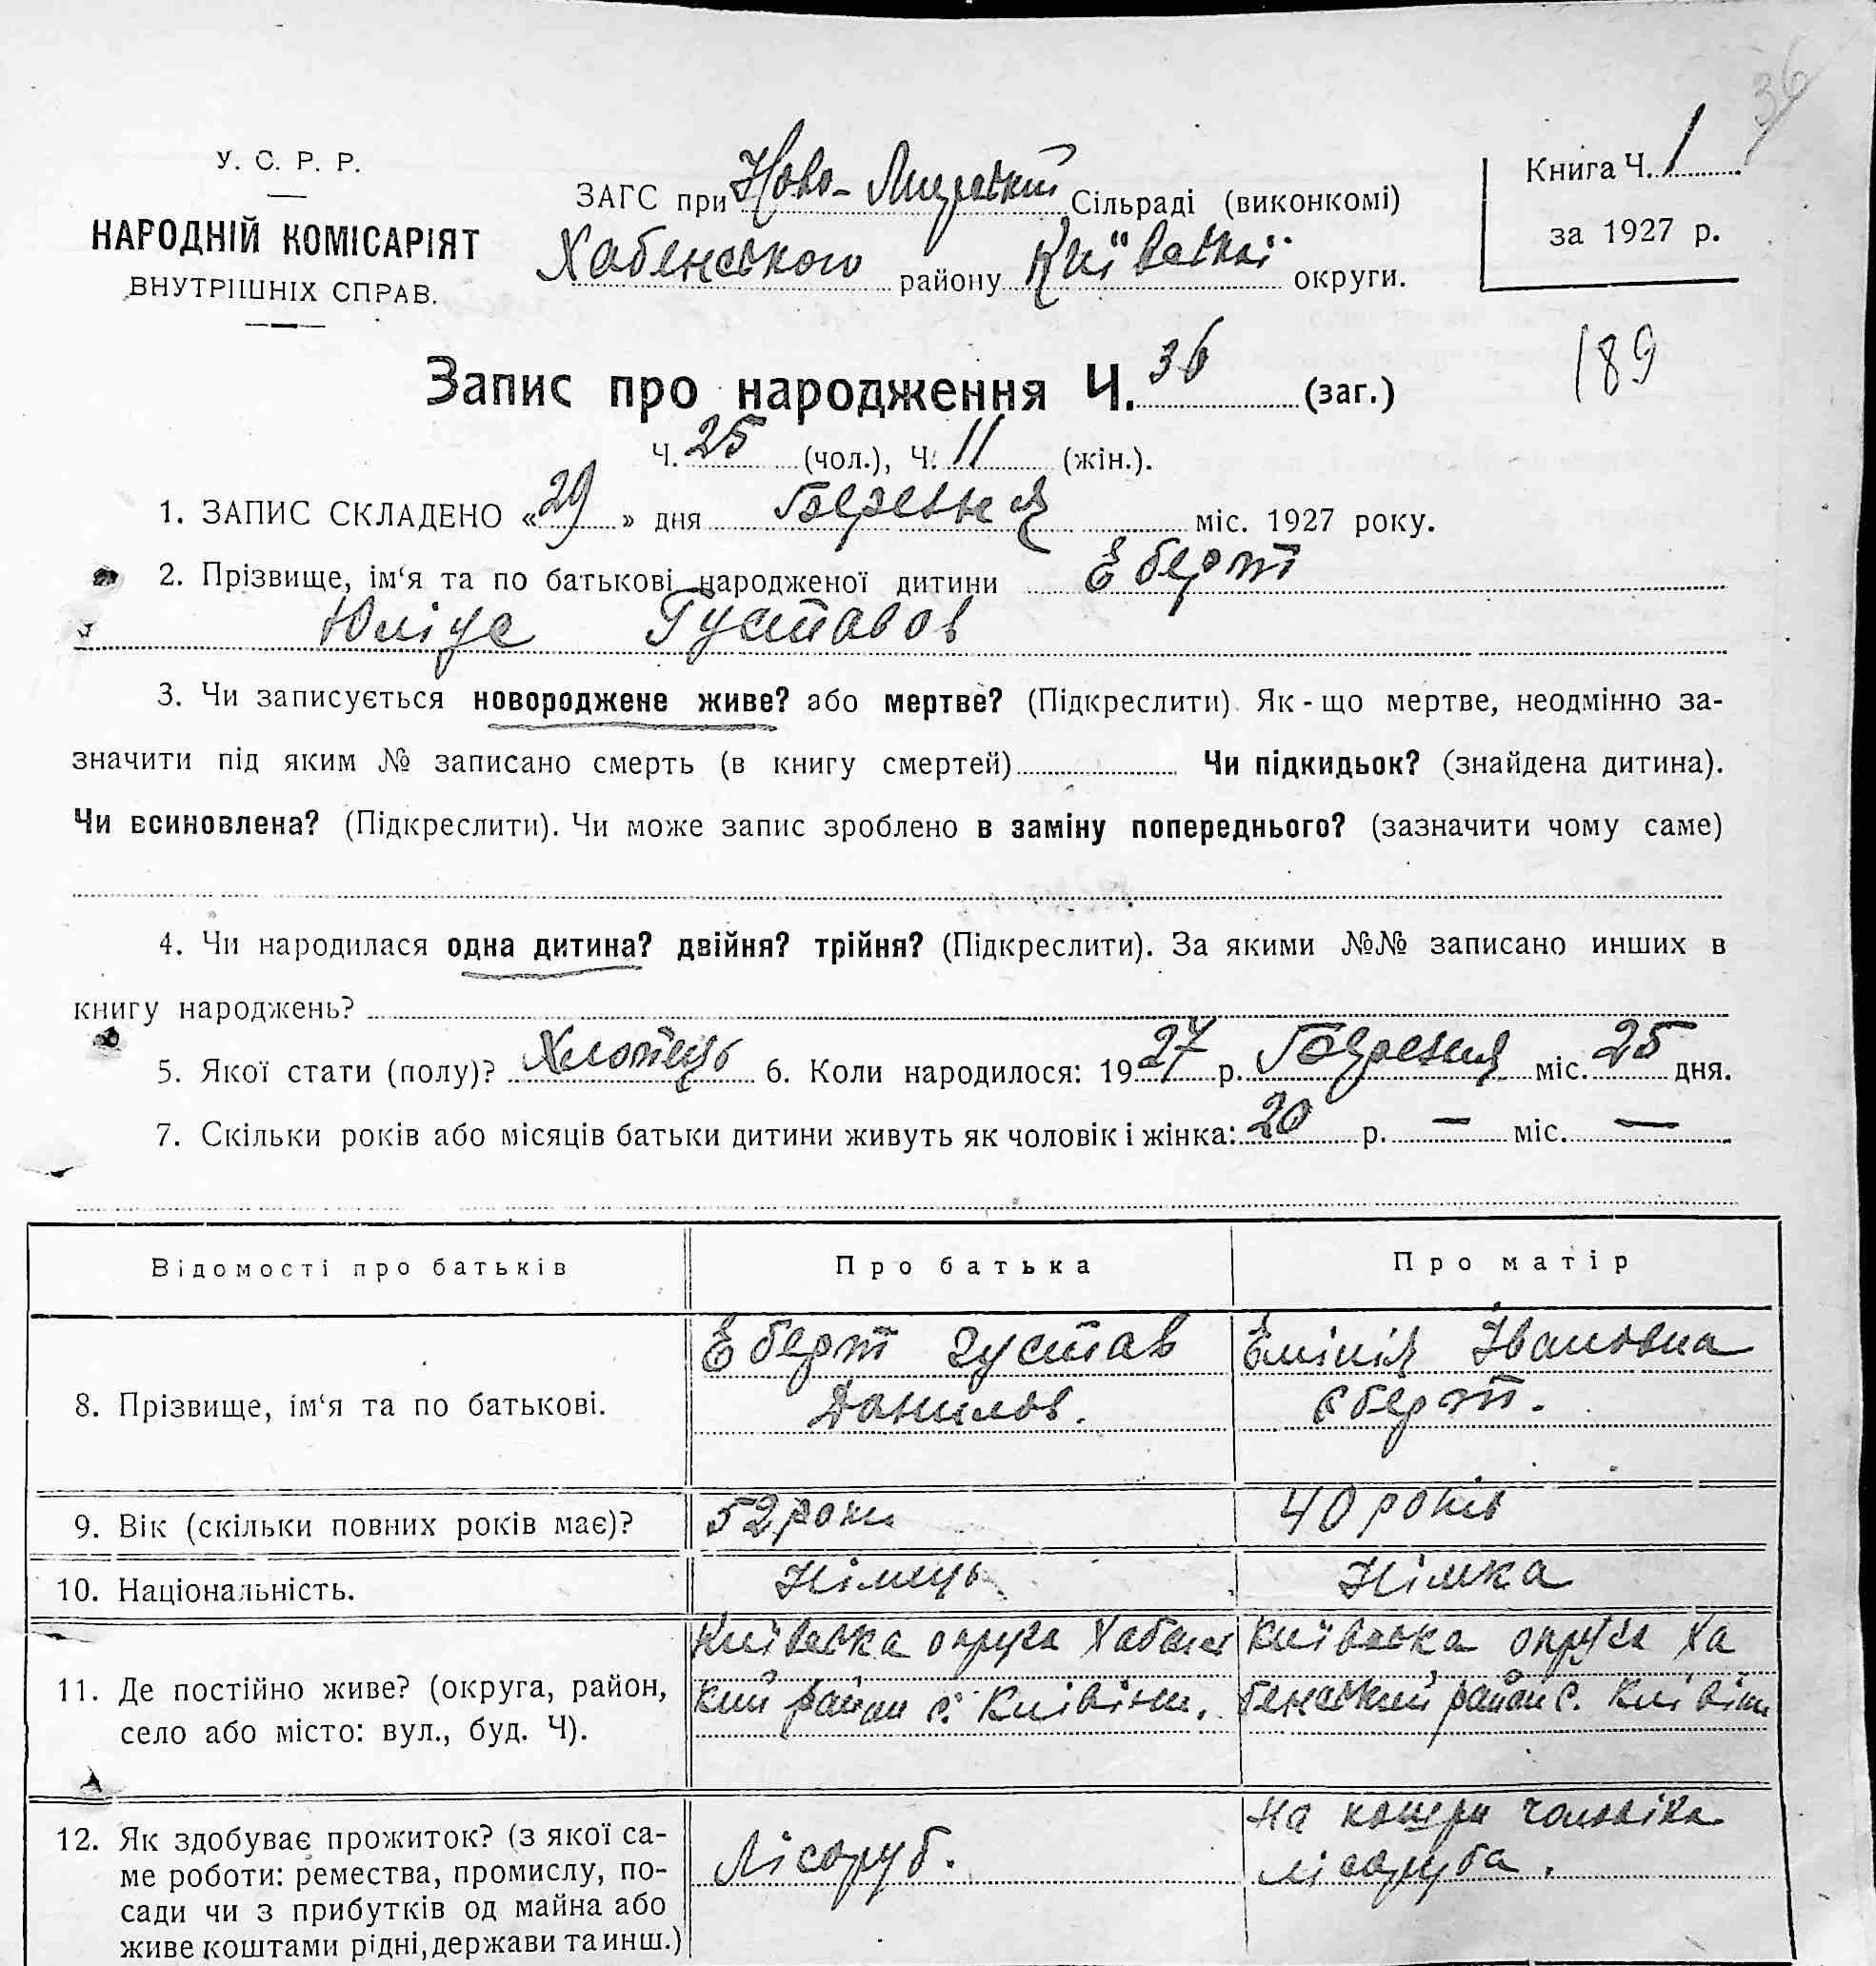 36
У. С. Р. Р.
НАРОДНІЙ КОМІСАРІЯТ
ВНУТРІШНІХ СПРАВ.
ЗАГС при Ново- Сільраді (виконкомі)
Хабенського району Київської округи.
Книга Ч. 1
за 1927 р.
189
Запис про народження Ч. 36 (заг.)
Ч. 25 (чол.), Ч. 11 (жін.).
1. ЗАПИС СКЛАДЕНО «29» дня Березня міс. 1927 року.
2. Прізвище, ім‘я та по батькові народженої дитини Еберт
Юліус Густавов
3. Чи записується новороджене живе? або мертве? (Підкреслити). Як - що мертве, неодмінно за-
значити під яким № записано смерть (в книгу смертей) Чи підкидьок? (знайдена дитина).
Чи всиновлена? (Підкреслити). Чи може запис зроблено в заміну попереднього? (зазначити чому саме)
4. Чи народилася одна дитина? двійня? трійня? (Підкреслити). За якими №№ записано инших в
книгу народжень?
5. Якої стати (полу)? Хлопець 6. Коли народилося: 1927 р. Березня міс. 25 дня.
7. Скільки років або місяців батьки дитини живуть як чоловік і жінка: 20 р. — міс. —
Відомості про батьків Про батька Про матір
8. Прізвище, ім‘я та по батькові.
Еберт Густав
Данилов.
Емілія Івановна
Еберт.
9. Вік (скільки повних років має)? 52 роки 40 років
10. Національність. Німець Німка
11. Де постійно живе? (округа, район,
село або місто: вул., буд. Ч).
Київська округа Хабенс
кий район с.
Київська округа Ха
бенський район с.
12. Як здобуває прожиток? (з якої са-
ме роботи: ремества, промислу, по-
сади чи з прибутків од майна або
живе коштами рідні, держави та инш.)
Лісоруб.
На кошти чоловіка
лісоруба.